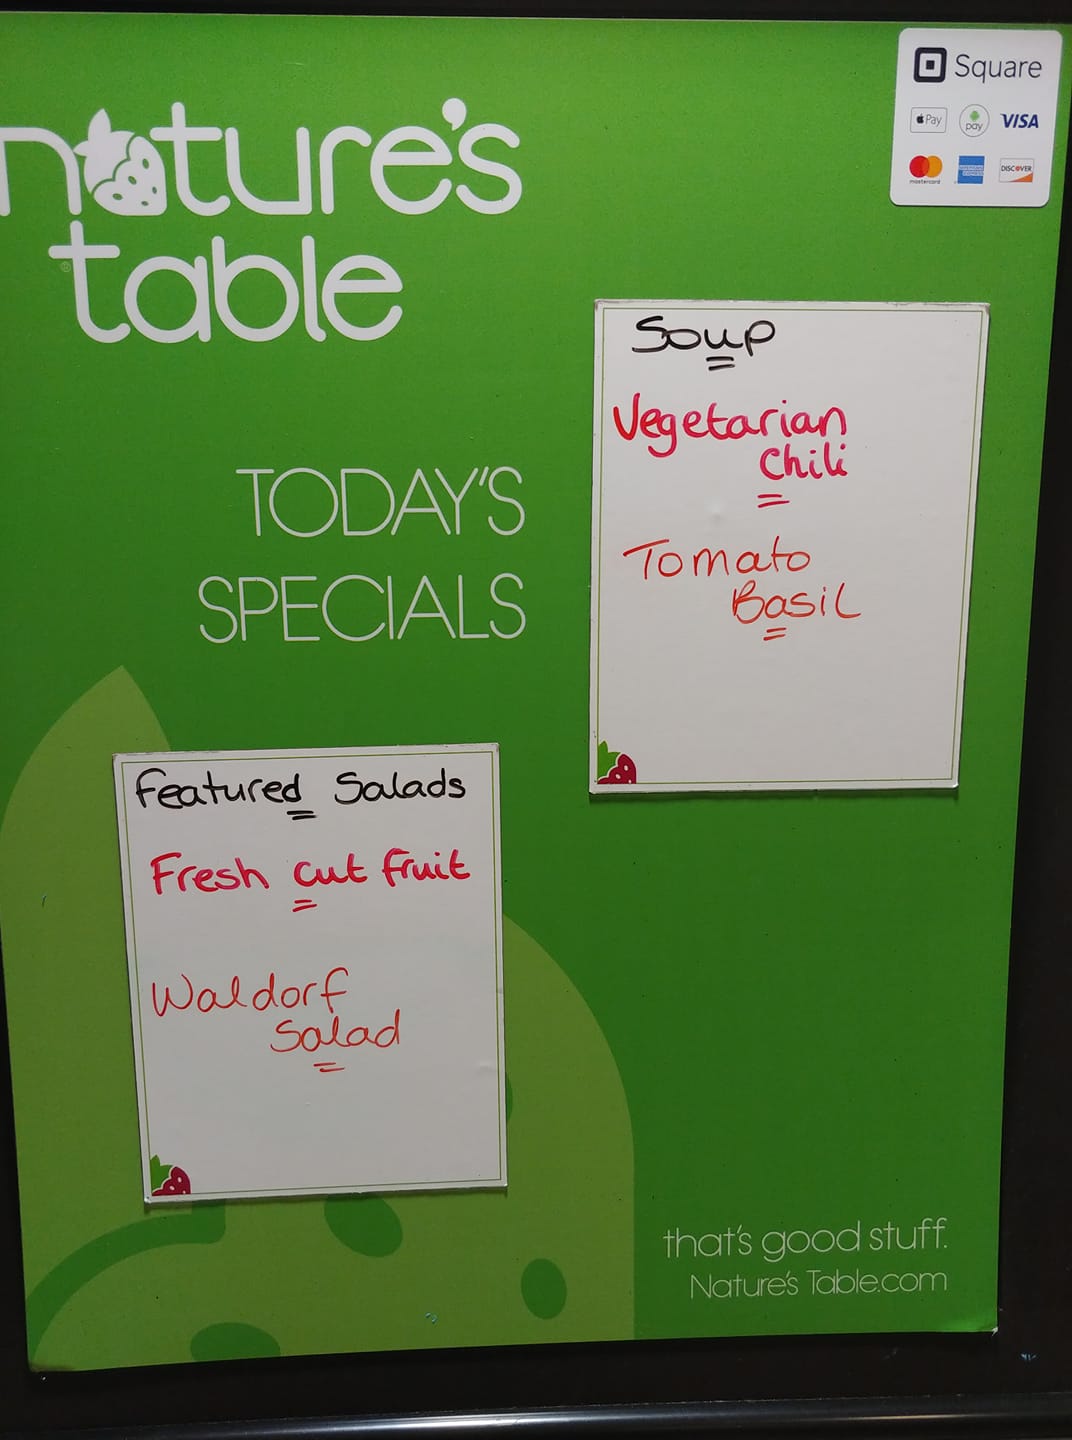 nature's
table
®
Square
Pay
pay
VISA
mastercard
AMERICAN EXPRESS
DISCOVER
TODAY'S
SPECIALS
Soup
Vegetarian
Chili
Tomato
Basil
Featured Salads
Fresh cut fruit
Waldorf
Salad
that's good stuff.
Nature's Table.com